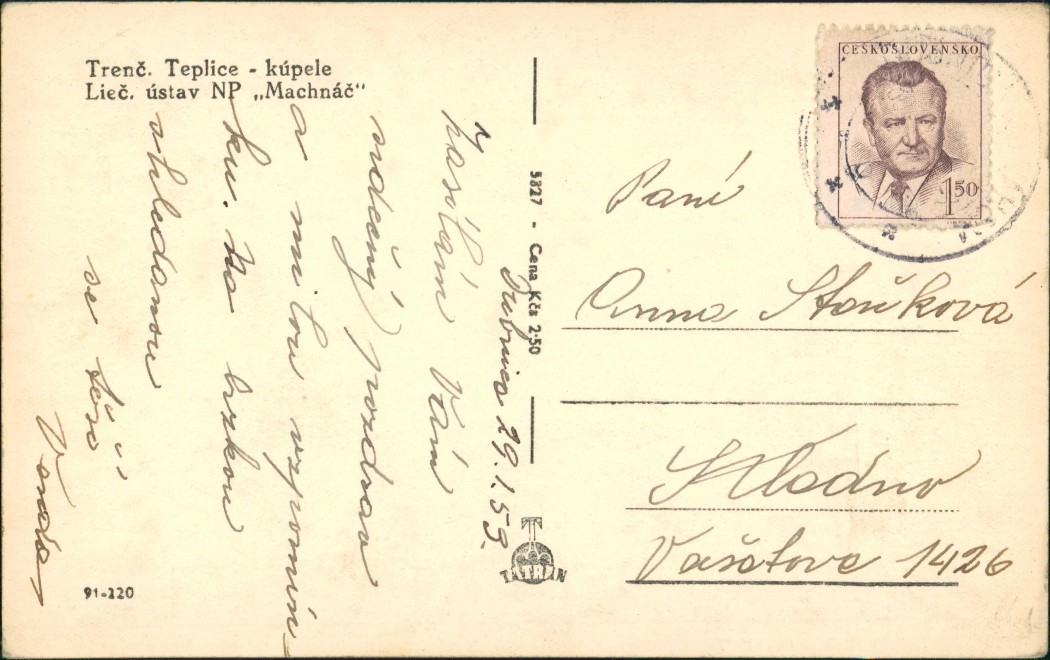 Trenč. Teplice - kúpele
Lieč. ústav NP „Machnáč“
Dubnica 29.1.53.
Zasílám Vám
srdečný pozdrav
a milou vzpomín-
ku. Na brzkou
shledanou
se těší
Vanda
5827 - Cena Kčs 2·50
TATRAN
91-220
ČESKOSLOVENSKO
1 50
Paní
Anna Stoŭková
Kladno
Vašatova 1426